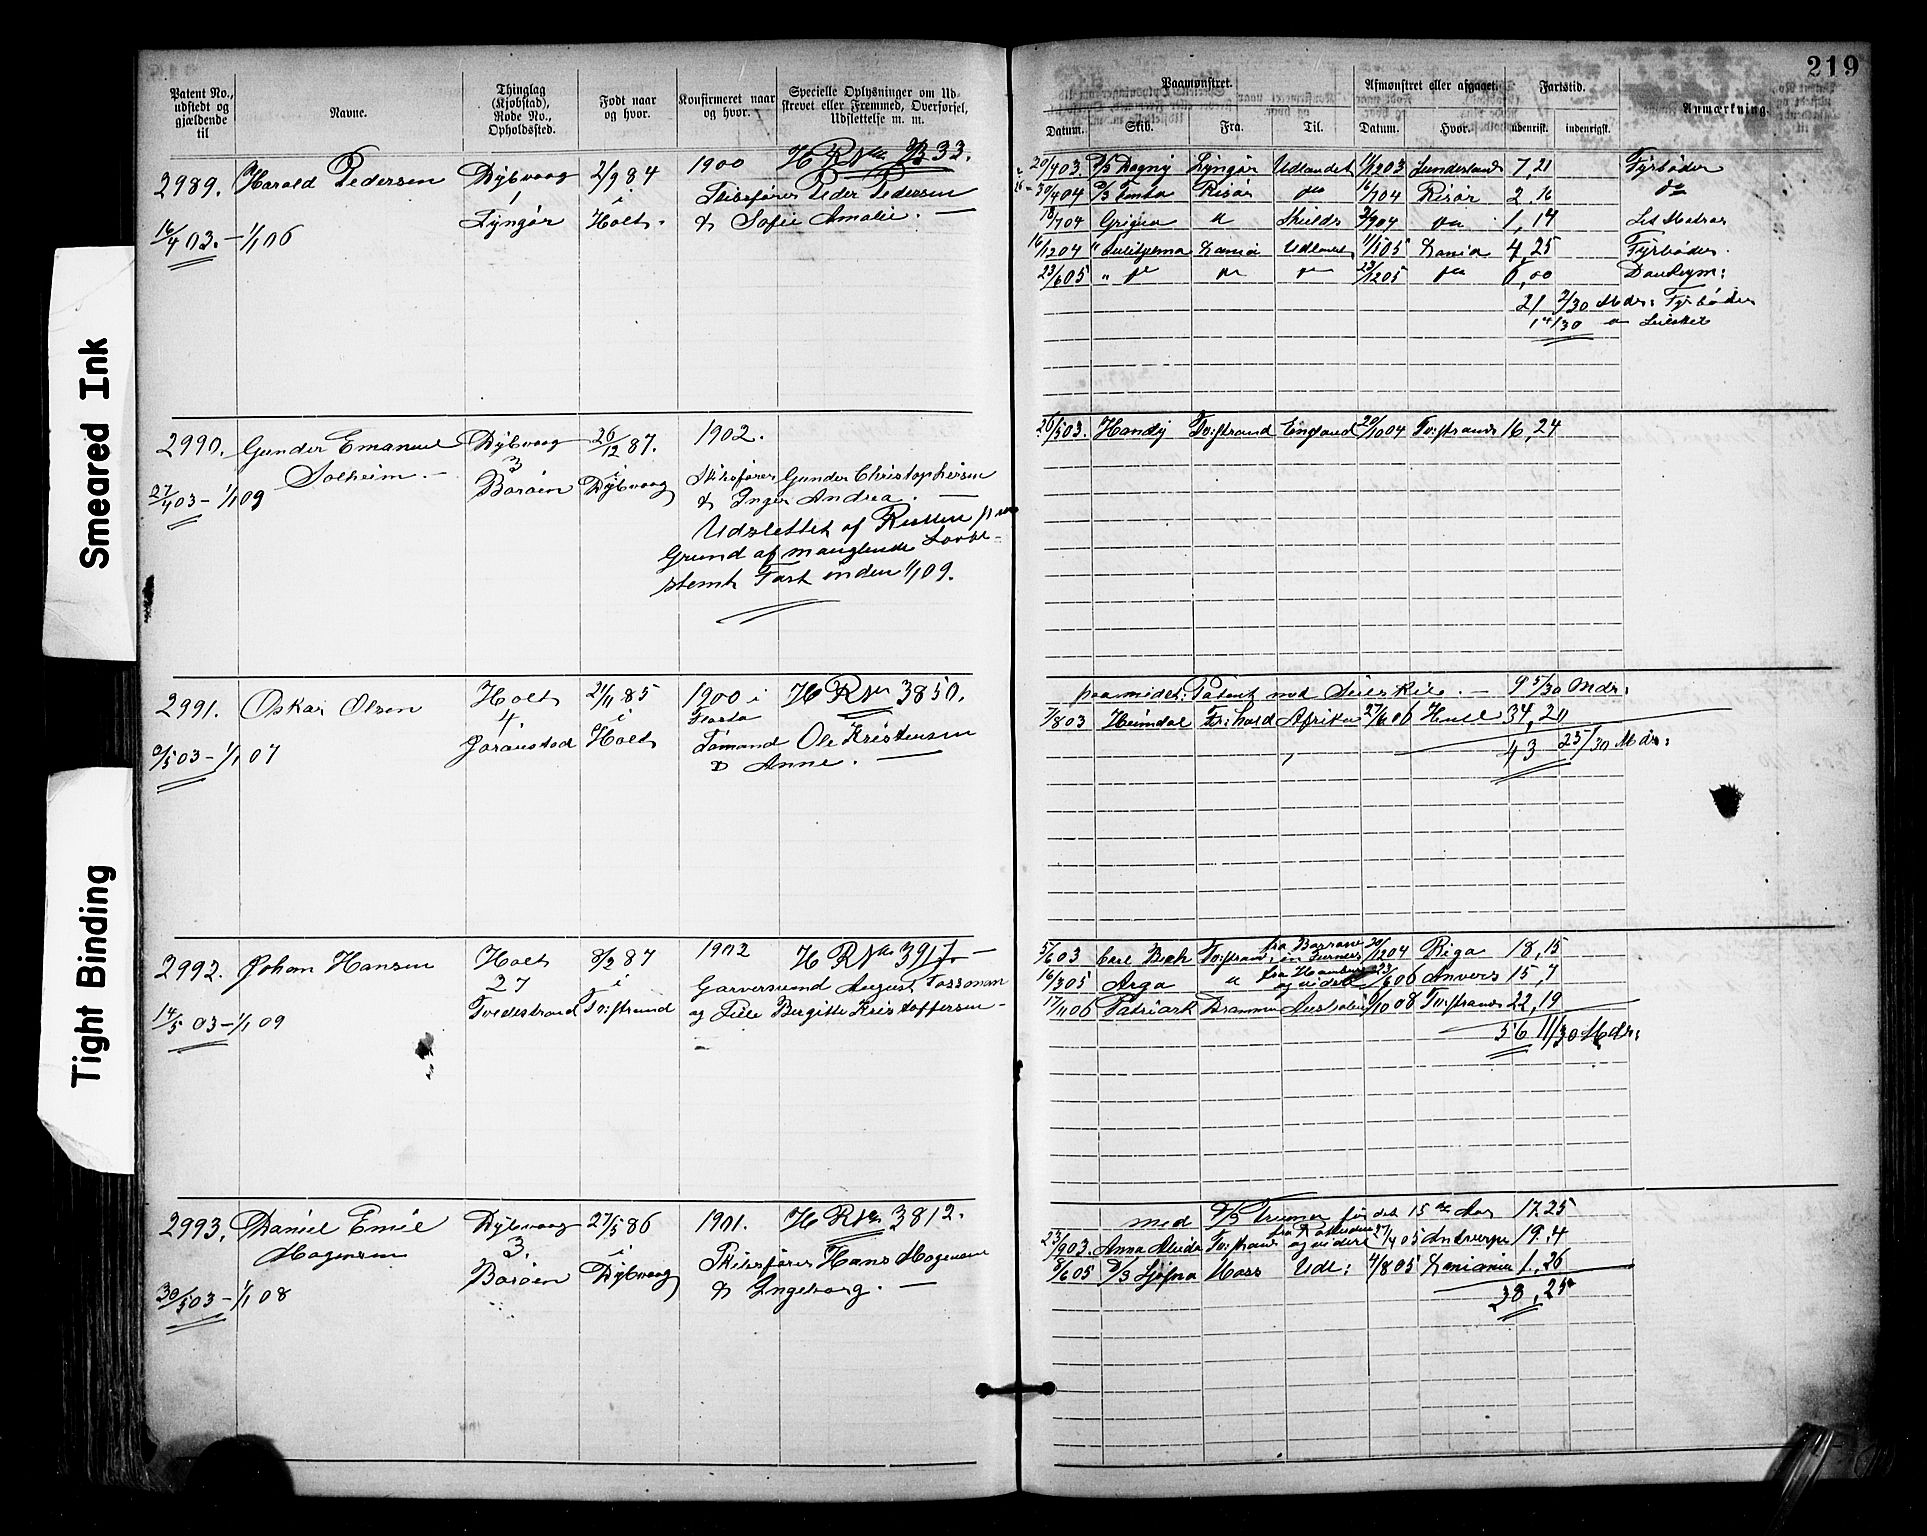 219
Smeared Ink
Tight Binding
Patent No., udstedt og gjældende til
Navne.
Thinglag (Kjøbstad), Rode No., Opholdssted.
Født naar og hvor.
Konfirmeret naar og hvor.
Specielle Oplysninger om Udskrevet eller Fremmed, Overførsel, Udslettelse m. m.
Paamønstret.
Afmønstret eller afgaaet.
Fartstid.
Anmærkning.
Datum. Skib. Fra. Til. Datum. Hvor. udenrigsk. indenrigsk.
2989. Harald Pedersen Dybvaag 2/9 84 1900 H R No
1 i Skibsfører Peder Pedersen
Lyngør Holt. & Sofie Amalie. —
16/4 03. — 1/1 06
20/4 03. D/S Dagny Lyngør Udlandet 11/12 03 Sunderland 7 21 Fyrbøder
30/4 04 Risør 16/7 04 Risør 2 16 do
18/7 04 Skields 2/9 04 1, 14 Let Matros
16/12 04 " Sulitjelma Udlandet 11/5 05 4, 25 Fyrbøder.
23/6 05 " 23/12 05 6,00
21 2/30 Mdr: Fyrbøder
1 14/30
2990. Gunder Emanuel Dybvaag 26/12 87. 1902.
Solheim. — 3 i Skibsfører Gunder Christophersen
Borøen Dybvaag & Inger Andrea. —
27/4 03 — 1/1 09
Udslettet af Rullen paa
Grund af manglende Lovbe-
stemt Fart inden 1/1 09.
26/5 03. Handy Tv:strand England 20/10 04 Tv:strand 16, 24
2991. Oskar Olsen Holt 21/11 85 1900 i H R No 3850.
4. i Flosta
Holt Tømand Ole Kristensen
& Anne. —
6/5 03 — 1/1 07
Patent med — 9 5/30 Mdr:
7/8 03 Heimdal Afrika 27/6 06 Hull 34, 20
43 25/30 Mdr:
2992. Johan Hansen Holt 8/2 87 1902 H R No 3917. —
27 i Garversvend August Tossman
Tvedestrand Tv:strand og Birgitte Kristoffersen —
14/5 03 — 1/1 09
5/6 03 Carl Bech Tv:strand 20/12 04 Riga 18, 15
16/3 05 Arga " fra Hamburg og videre 23/6 06 Anvers 15, 7
17/11 06 Patriark Drammen Australien 1/10 08 Tv:strand 22, 19
56 11/30 Mdr:
2993. Daniel Emil Dybvaag 27/5 86 1901. H R No 3812.
Mogensen 3. i Skibsfører Hans Mogensen
Borøen Dybvaag & Ingeborg. —
30/5 03 — 1/1 08
med D/S før det 15de Aar 17.25
23/9 03. Anna Tv:strand fra Rotterdam og videre 27/4 05 Antwerpen 19.4
8/6 05 D/S Sjøfna Moss Udl: 4/8 05 1. 26
38, 25